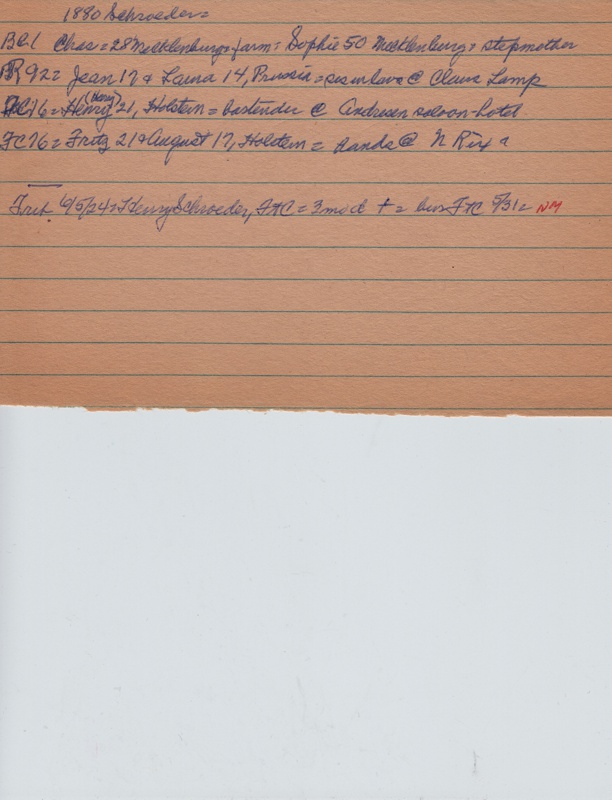 1880 Schroeder=
Be1 Chas = 28 Mecklenburg = farm: Sophie 50 Mecklenburg = stepmother
R 92 = Jean 17 & Laura 14, Prussia = sis in laws @ Claus Lamp
76 = Henry (Harry) 21, Holstein = bartender @ Andresen saloon-hotel
FC76 = Fritz 21 & August 17, Holstein = hands @ N Rix
Trib. 6/5/24 = Henry Schroeder, = 3 mo d + = bur 5/31 = NM